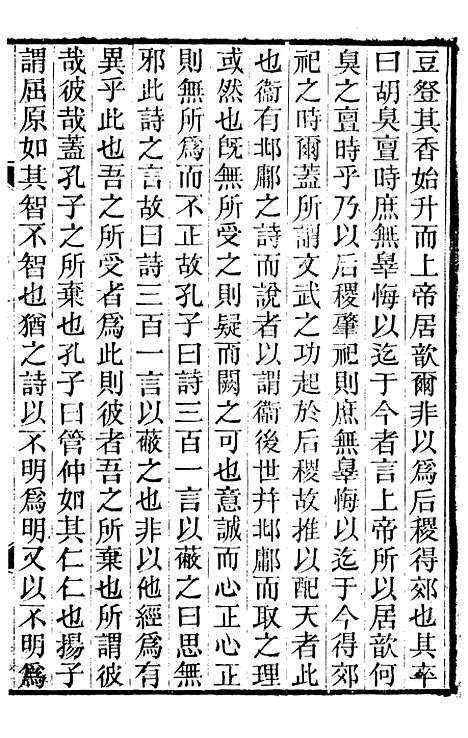 豆登其香始升而上帝居歆爾非以爲后稷得郊也其卒
曰胡臭亶時庶無辠悔以迄于今者言上帝所以居歆何
臭之亶時乎乃以后稷肇祀則庶無辠悔以迄于今得郊
祀之時爾蓋所謂文武之功起於后稷故推以配天者此
也衞有邶鄘之詩而說者以謂衞後世并邶鄘而取之理
或然也旣無所受之則疑而闕之可也意誠而心正心正
則無所爲而不正故孔子曰詩三百一言以蔽之曰思無
邪此詩之言故曰詩三百一言以蔽之也非以他經爲有
異乎此也吾之所受者爲此則彼者吾之所棄也所謂彼
哉彼哉蓋孔子之所棄也孔子曰管仲如其仁仁也揚子
謂屈原如其智不智也猶之詩以不明爲明又以不明爲